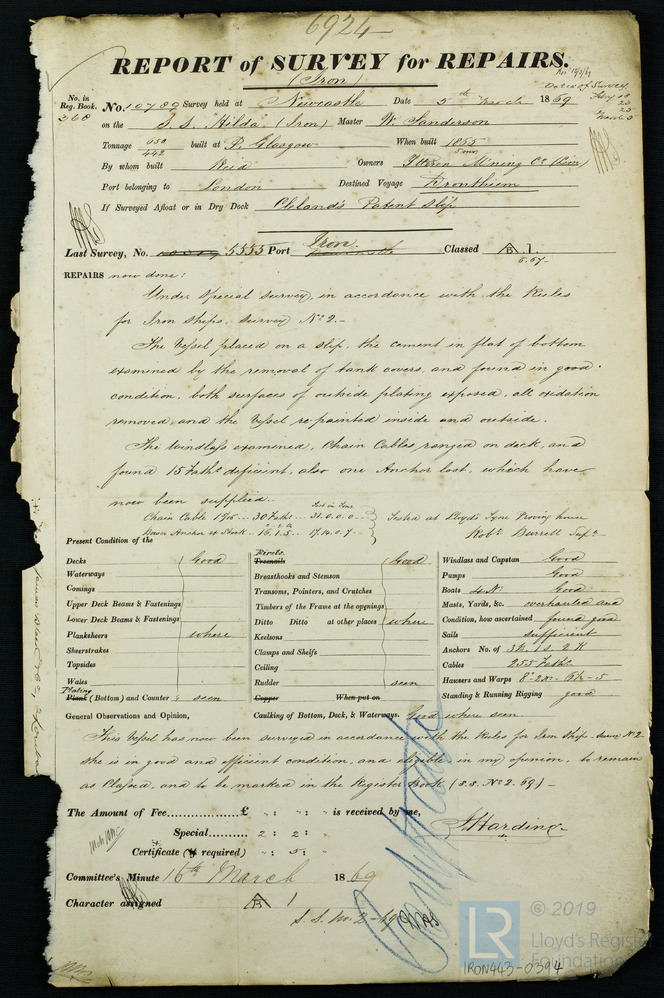 6924
REPORT of SURVEY for REPAIRS.
(Iron)
Dates of Survey
No. in Reg. Book. 368
No. 10789 Survey held at Newcastle Date 5th March 1869
on the S.S. Hilda (Iron) Master W. Sanderson
Tonnage 650 442 built at P. Glasgow When built 1855
By whom built Reid Owners Mining Co
Port belonging to London Destined Voyage Drontheim
If Surveyed Afloat or in Dry Dock Cleland's Patent Slip
Last Survey, No. 5555 Port Iron Classed A 1. 5.67
REPAIRS now done:
Under Special Survey, in accordance with the Rules
for Iron Ships. Survey No 2.
The Vessel placed on a slip, the cement in flat of bottom
examined by the removal of tank covers, and found in good
condition, both surfaces of outside plating exposed, all oxidation
removed, and the Vessel repainted inside and outside.
The Windlass examined, Chain Cables ranged on deck, and
found 15 Faths deficient, also one Anchor lost, which have
now been supplied.
Test in Tons
Chain Cable 30 Faths 31.0.0.0 Tested at Lloyds Tyne Proving house
Bower Anchor & Stock 16.1.5 17.14.0.7 Robt Burrell Supt
Present Condition of the
Decks Good
Waterways
Comings
Upper Deck Beams & Fastenings
Lower Deck Beams & Fastenings
Planksheers where
Sheerstrakes
Topsides
Wales
Plating
Plank (Bottom) and Counter seen
Rivets
Treenails Good
Breasthooks and Stemson
Transoms, Pointers, and Crutches
Timbers of the Frame at the openings
Ditto Ditto at other places where
Keelsons
Clamps and Shelfs
Ceiling
Rudder seen
Copper When put on
Windlass and Capstan Good
Pumps Good
Boats 4 No Good
Masts, Yards, &c. overhauled and
Condition, how ascertained found good
Sails sufficient
Anchors No. of 3B. 1S. 2K
Cables 255 Faths
Hawsers and Warps
Standing & Running Rigging good
General Observations and Opinion, Caulking of Bottom, Deck, & Waterways. Good where seen
This Vessel has now been surveyed in accordance with the Rules for Iron Ships. Survey No 2
she is in good and efficient condition, and eligible in my opinion, to remain
as Classed, and to be marked in the Register Book (S.S. No 2. 69)
The Amount of Fee £ : : is received by me,
Special 2 : 2 :
Certificate (if required) : 5 :
J Harding
Committee's Minute 16th March 1869
Character assigned A 1
S.S. No. 2-69
LR
© 2019
Lloyd's Register
Foundation
IRON443-0394